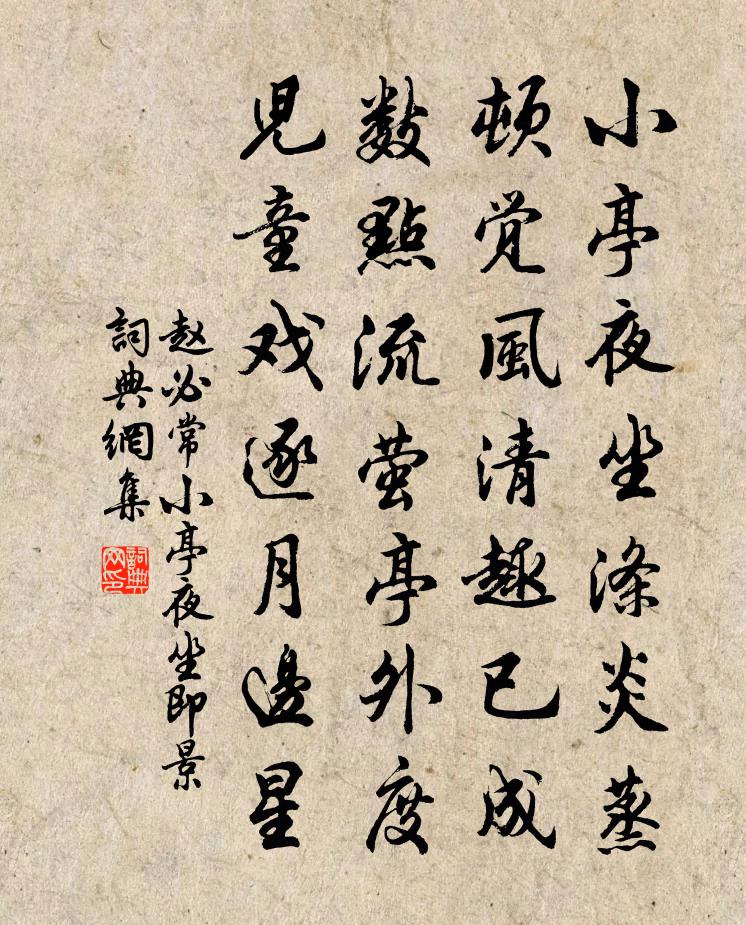 小亭夜坐涤炎蒸
顿觉風清趣已成
数點流萤亭外度
児童戏逐月邊星
赵必常小亭夜坐即景
詞典網集
詞典網印